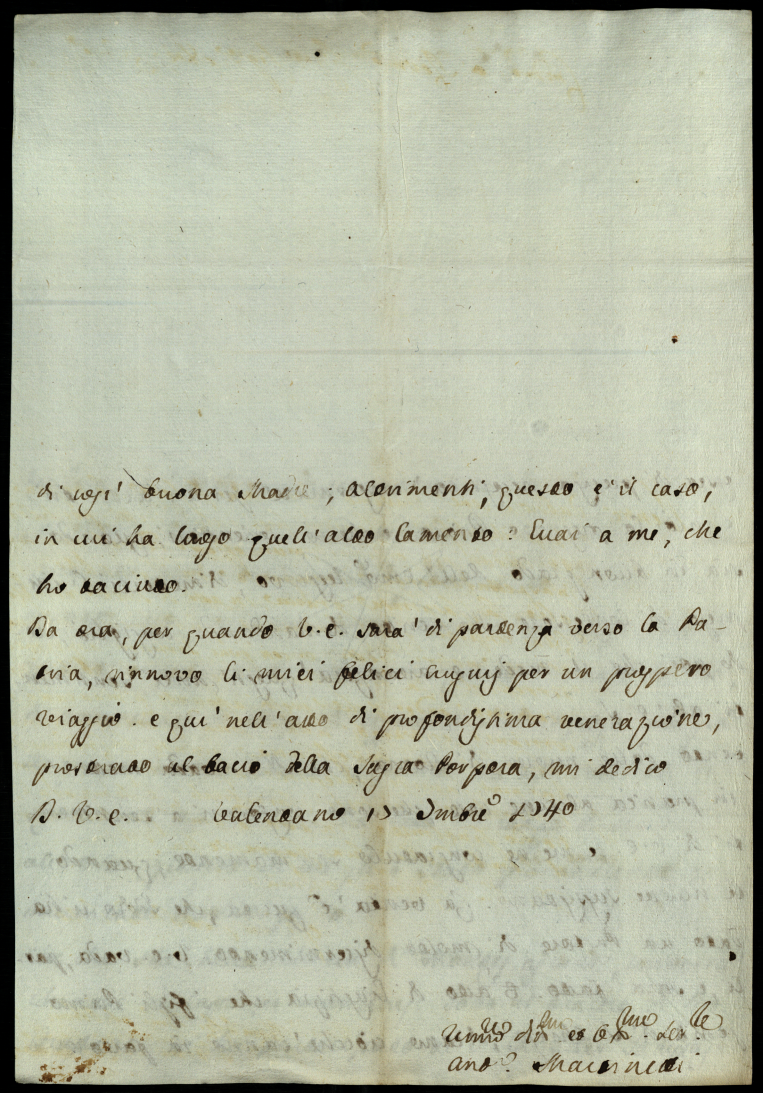 di ogi' buona Madre; altrimenti, questo e' il caso,
in cui ha luogo quell'altro lamento: Guai a me, che
ho taciuto.
Da ora, per quando V. E. sara' di partenza verso la Pa-
tria, rinnovo li miei felici augurj per un prospero
viaggio. e qui nell'atto di profondissima venerazione,
prostrato al bacio della Sagra Porpora, mi dedico
D. V. E. Valentano 15 Smbre
Umo dmo et obmo Serre
Anto. Martinelli